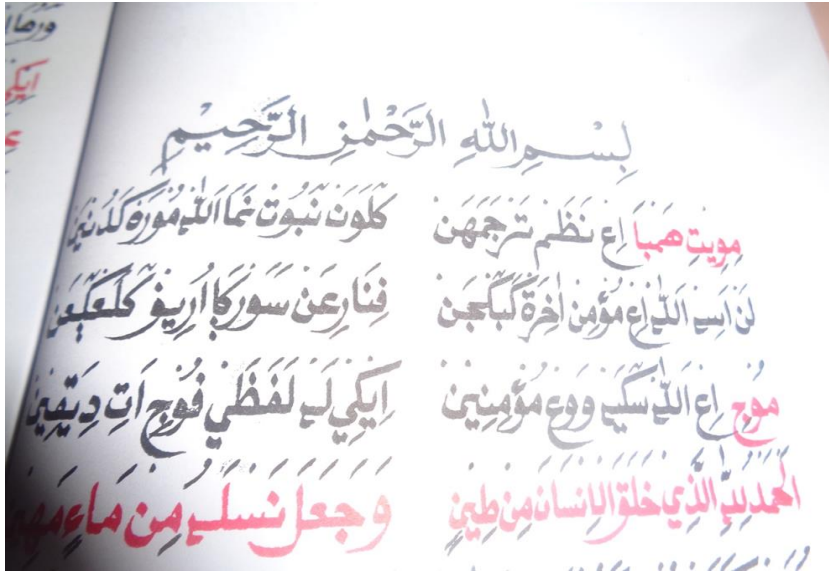 بِسْمِ اللّٰهِ الرَّحْمٰنِ الرَّحِيْمِ
مويت همبا اع نظم ترجمهن كلون نبوت نما اللّٰه موره كدنين
لن اسي اللّٰه اع مؤمن اخرة كبلجن فنارعن سوركا اريف كلعليعن
موج اع اللّٰه سكيي ووع مؤمنين ايكي لي لفظي فوج ات ديتقين
الحمد لله الذي خلق الإنسان من طين وجعل نسله من ماء مهين